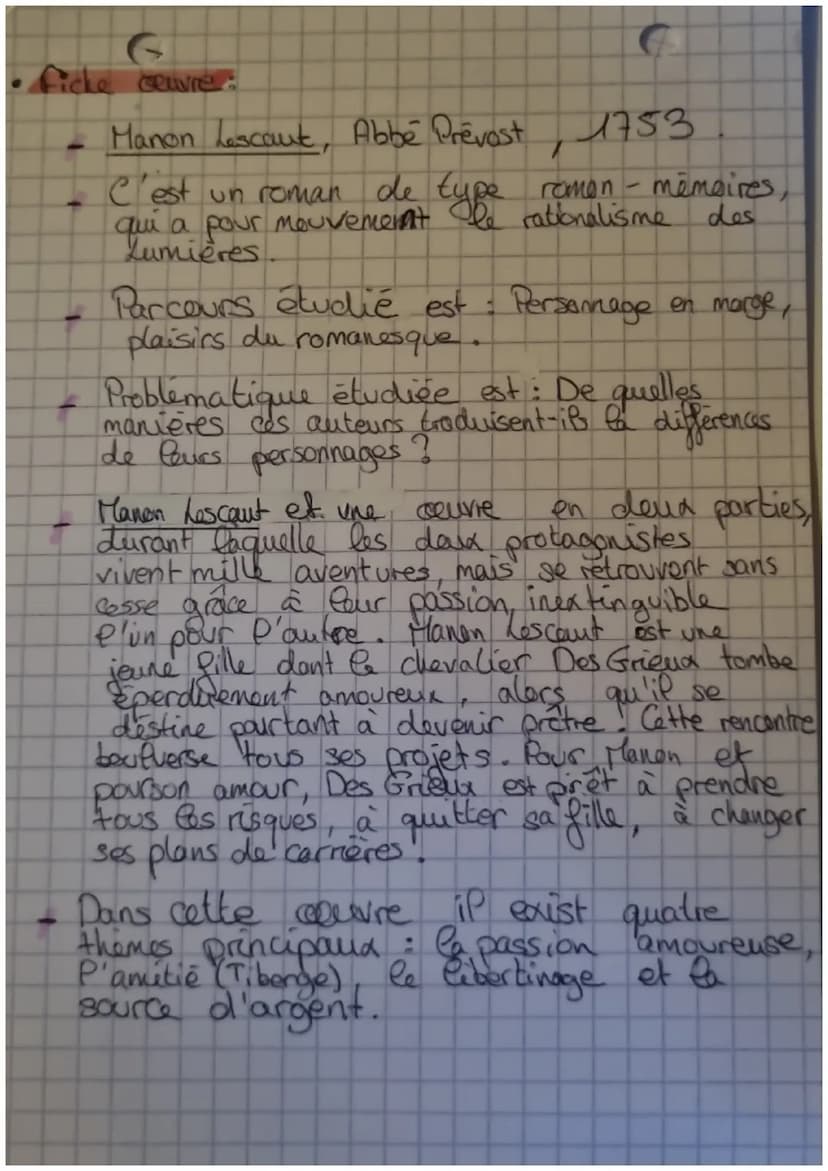 • Fiche œuvre :
- Manon Lescaut, Abbé Prévost, 1753.
- C'est un roman de type roman-mémoires,
qui a pour mouvement le rationalisme des
Lumières.
- Parcours étudié est : Personnage en marge,
plaisirs du romanesque.
- Problématique étudiée est : De quelles
manières ces auteurs traduisent-ils la différences
de leurs personnages ?
- Manon Lescaut et une œuvre en deux parties,
durant laquelle les deux protagonistes
vivent mille aventures, mais se retrouvent sans
cesse grâce à leur passion inextinguible
l'un pour l'autre. Manon Lescaut est une
jeune fille dont le chevalier Des Grieux tombe
éperdûrement amoureux, alors qu'il se
déstine pourtant à devenir prêtre ! Cette rencontre
boulverse tous ses projets. Pour Manon et
pourson amour, Des Grieux est prêt à prendre
tous les risques, à quitter sa fille, à changer
ses plans de carrières !
- Dans cette œuvre il exist quatre
thèmes principaux : la passion amoureuse,
l'amitié (Tiberge), le libertinage et la
source d'argent.